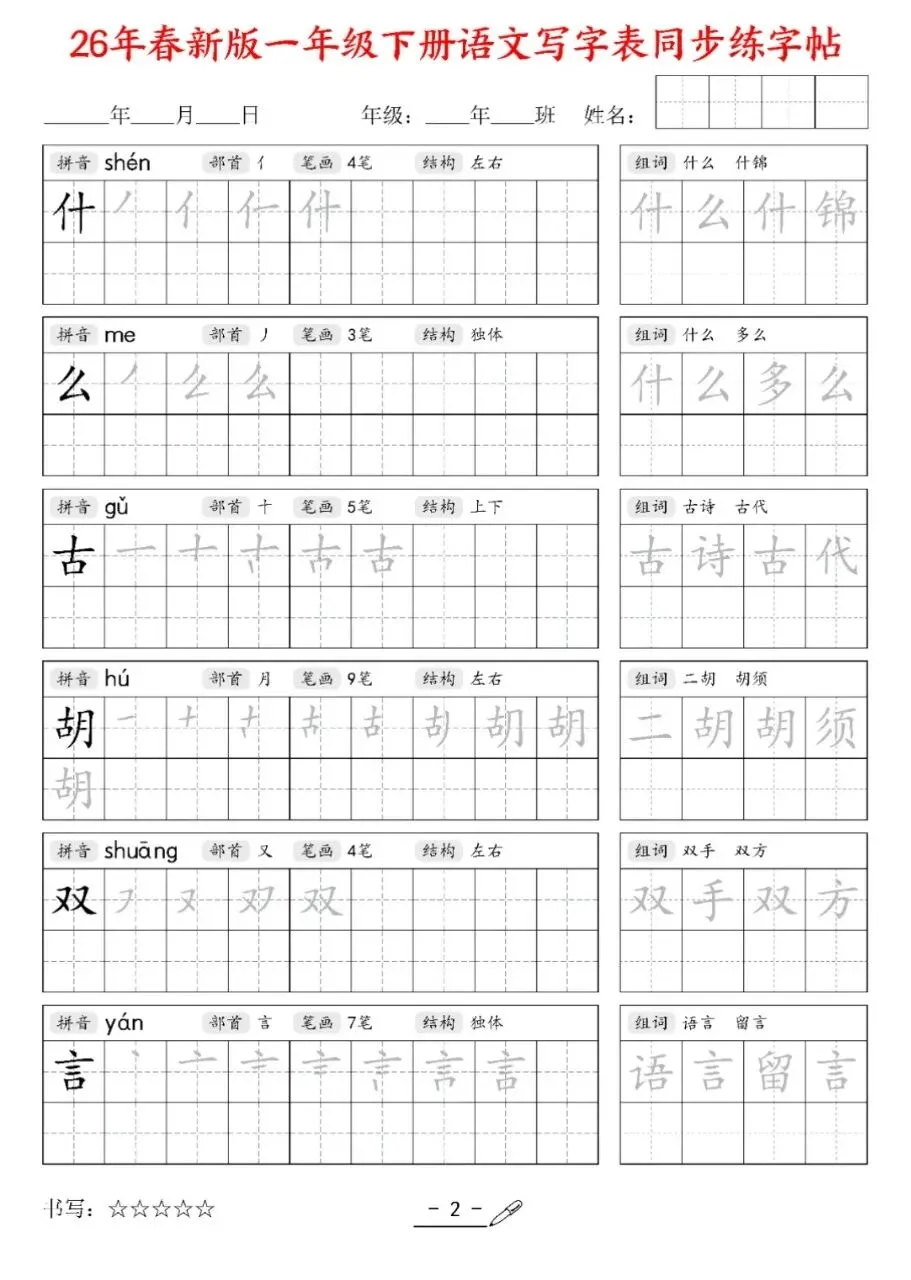 26年春新版一年级下册语文写字表同步练字帖
______年____月____日 年级：____年____班 姓名：
拼音 shén 部首 亻 笔画 4笔 结构 左右 组词 什么 什锦
什 丿 亻 仁 什 什 么 什 锦
拼音 me 部首 丿 笔画 3笔 结构 独体 组词 什么 多么
么 丿 么 么 什 么 多 么
拼音 gǔ 部首 十 笔画 5笔 结构 上下 组词 古诗 古代
古 一 十 古 古 古 诗 古 代
拼音 hú 部首 月 笔画 9笔 结构 左右 组词 二胡 胡须
胡 一 十 古 胡 胡 二 胡 胡 须
胡
拼音 shuāng 部首 又 笔画 4笔 结构 左右 组词 双手 双方
双 フ 又 双 双 手 双 方
拼音 yán 部首 言 笔画 7笔 结构 独体 组词 语言 留言
言 丶 亠 言 语 言 留 言
书写：☆☆☆☆☆ - 2 -